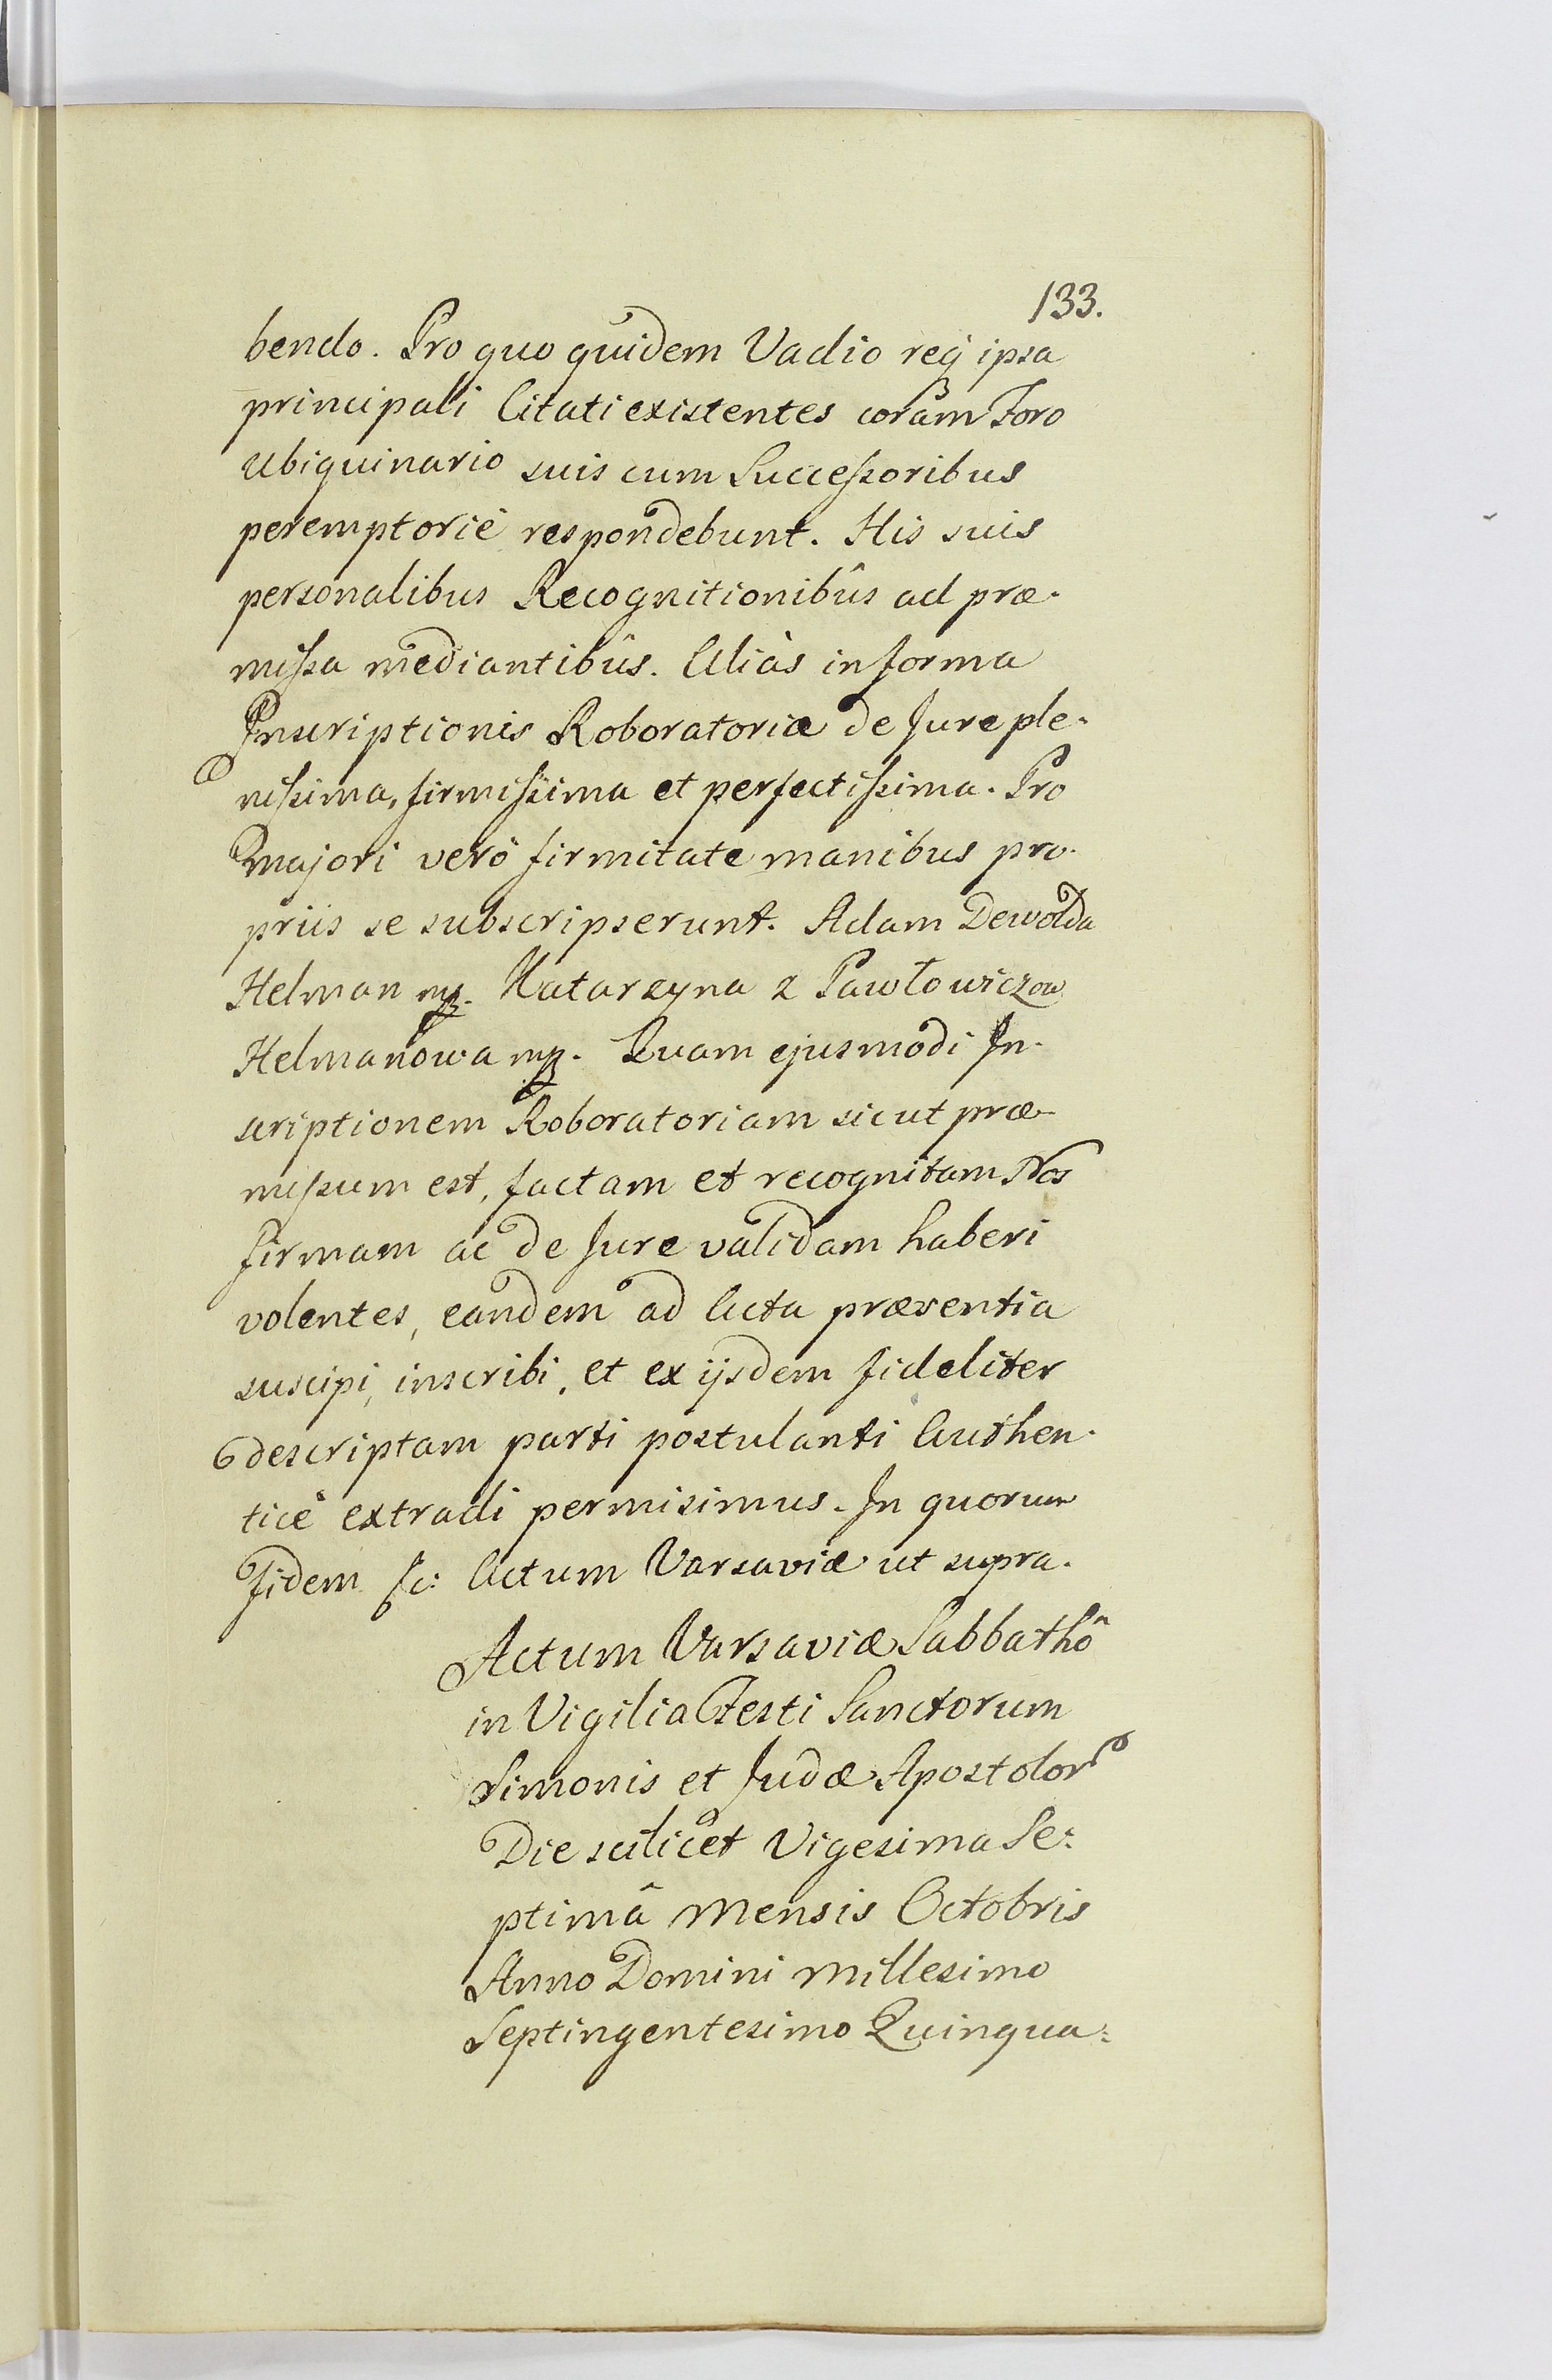 133.
bendo. Pro quo quidem Vadio req̃ ipsa
principali Citati existentes corám Foro
Ubiquinario suis cum Successoribus
peremptoriè respondebunt. His suis
personalibus Recognitionibûs ad præ-
missa mediantibûs. Aliàs in forma
Inscriptionis Roboratoriæ de Jure ple-
nissima, firmissima et perfectissima. Pro
majori verò firmitate manibus pro-
priis se subscripserunt. Adam Dewolda
Helman mp. Katarzyna z Pawłowiczow
Helmanowa mp. Quam ejusmodi In-
scriptionem Roboratoriam sicut præ-
missum est, factam et recognitam Nos
firmam ac de Jure validam haberi
volentes, eandem ad Acta præsentia
suscipi, inscribi, et ex ijsdem fideliter
descriptam parti postulanti Authen-
ticè extradi permisimus. In quorum
fidem &c: Actum Varsaviæ ut supra.
Actum Varsaviæ Sabbathô
in Vigilia Festi Sanctorum
Simonis et Judæ Apostolor
Die scilicet Vigesima Se:
ptimâ Mensis Octobris
Anno Domini Millesimo
Septingentesimo Quinqua: